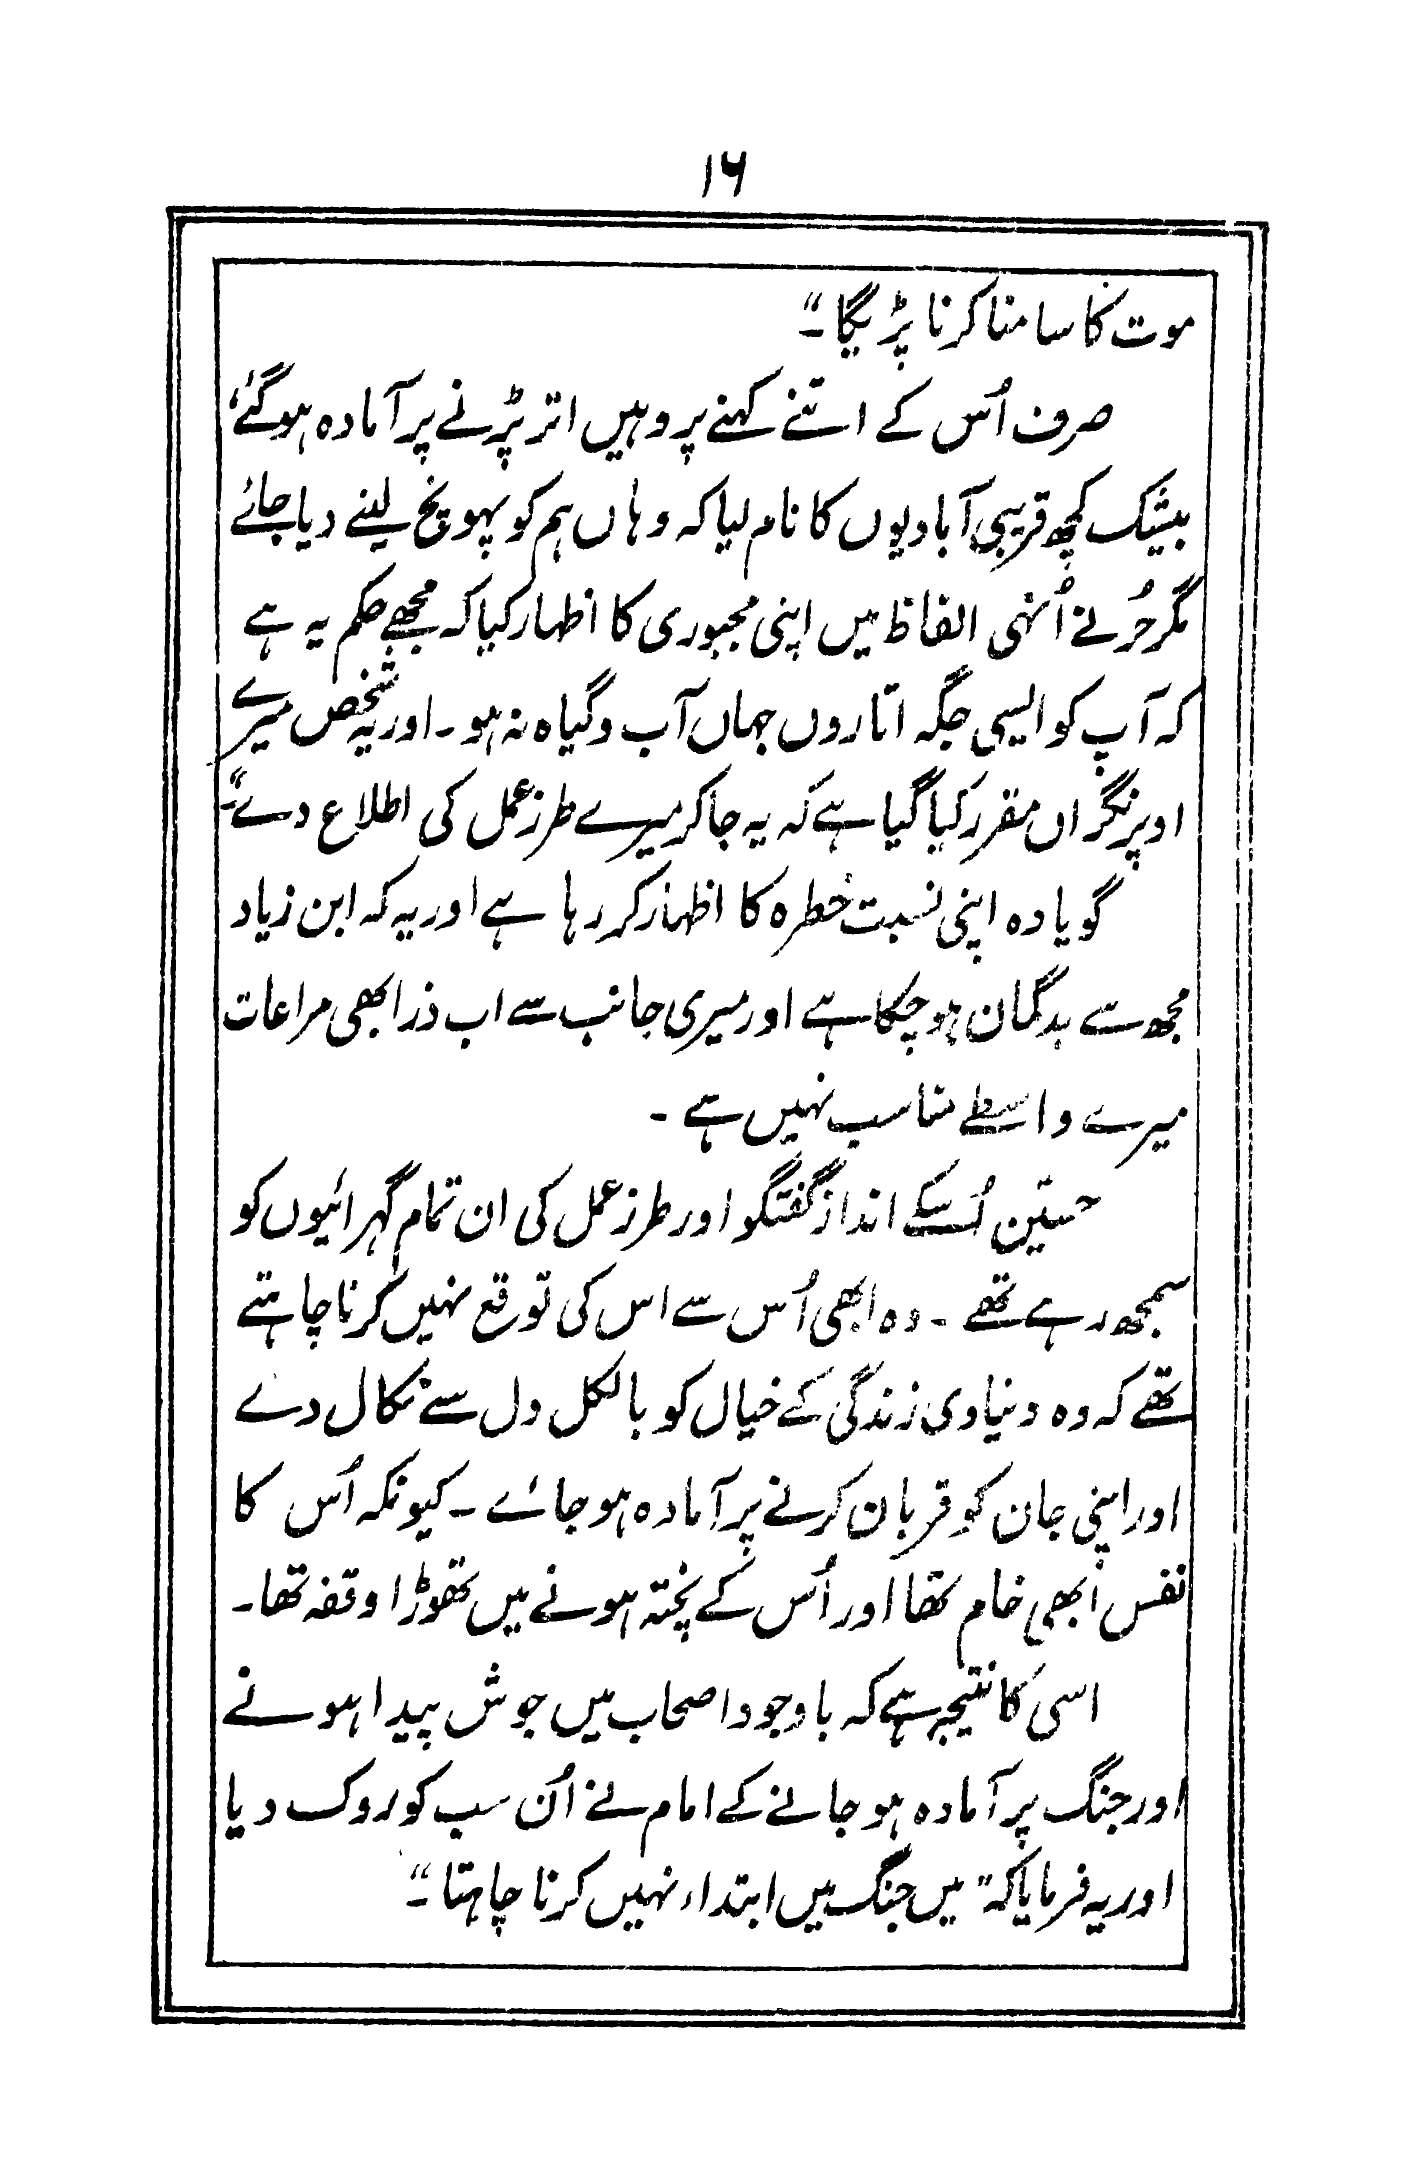 ۱۶
موت کا سامنا کرنا پڑیگا۔"
صرف اُس کے اتنے کہنے پر وہیں اتر پڑنے پر آمادہ ہوگئے،
بیشک کچھ قریبی آبادیوں کا نام لیا کہ وہاں ہم کو پہونچ لینے دیا جائے
مگر حُر نے اُنہی الفاظ میں اپنی مجبوری کا اظہار کیا کہ مجھے حکم یہ ہے
کہ آپ کو ایسی جگہ اتاروں جہاں آب و گیاہ نہ ہو۔ اور یہ شخص میرے
اوپر نگراں مقرر کیا گیا ہے کہ یہ جا کر میرے طرز عمل کی اطلاع دے۔"
گویا وہ اپنی نسبت خطرہ کا اظہار کر رہا ہے اور یہ کہ ابن زیاد
مجھ سے بدگمان ہو چکا ہے اور میری جانب سے اب ذرا بھی مراعات
میرے واسطے مناسب نہیں ہے۔
حسینؑ اُسکے انداز گفتگو اور طرز عمل کی ان تمام گہرائیوں کو
سمجھ رہے تھے۔ وہ ابھی اُس سے اس کی توقع نہیں کرنا چاہتے
تھے کہ وہ دنیاوی زندگی کے خیال کو بالکل دل سے نکال دے
اور اپنی جان کو قربان کرنے پر آمادہ ہو جائے۔ کیونکہ اُس کا
نفس ابھی خام تھا اور اُس کے پختہ ہونے میں تھوڑا وقفہ تھا۔
اسی کا نتیجہ ہے کہ باوجود اصحاب میں جوش پیدا ہونے
اور جنگ پر آمادہ ہو جانے کے امام نے اُن سب کو روک دیا
اور یہ فرمایا کہ "میں جنگ میں ابتداء نہیں کرنا چاہتا۔"